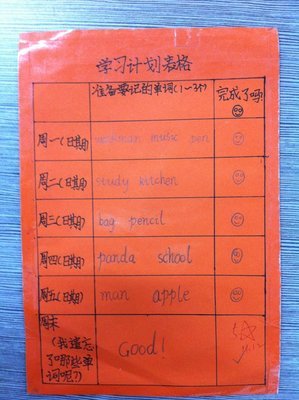 学习计划表格
准备要记的单词(1~3个) 完成了吗?
周一(日期) music pen
周二(日期) study kitchen
周三(日期) bag pencil
周四(日期) panda school
周五(日期) man apple
周末
(我遗忘
了哪些单
词呢?)
Good!